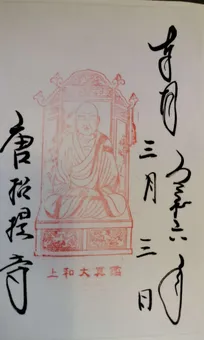 奉拝
令和六年
三月三日
鑑真大和上
唐招提寺